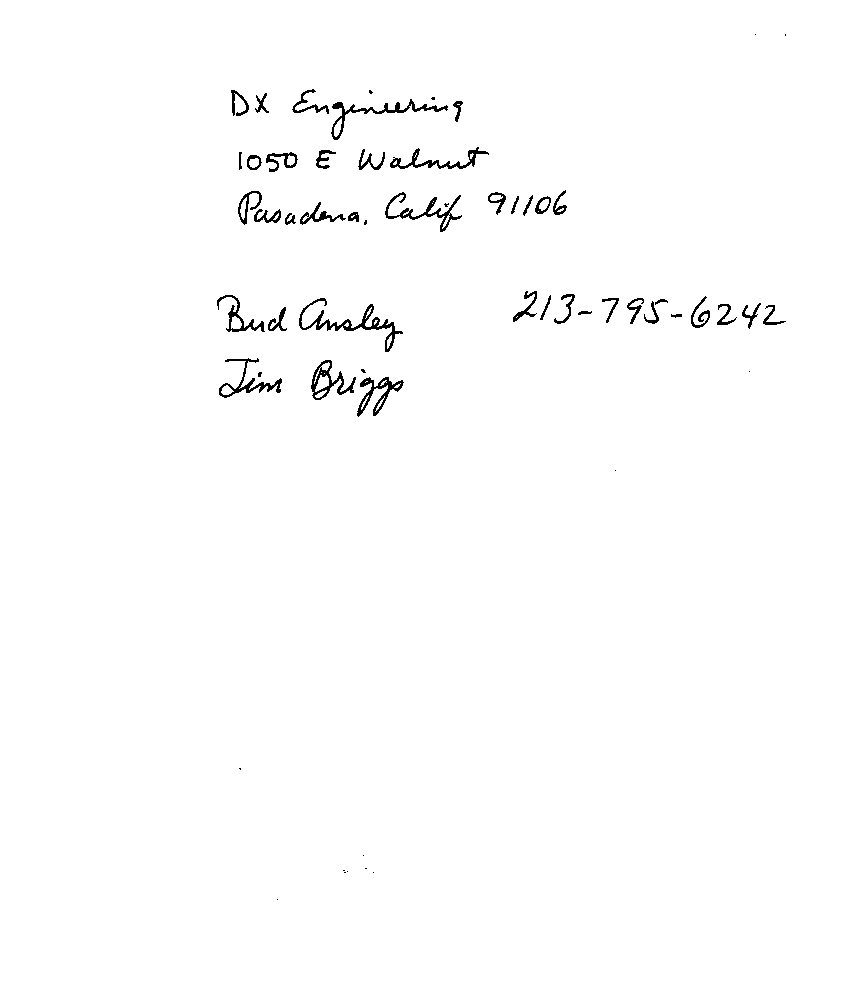 DX Engineering
1050 E Walnut
Pasadena, Calif 91106
Bud Ansley 213-795-6242
Jim Briggs